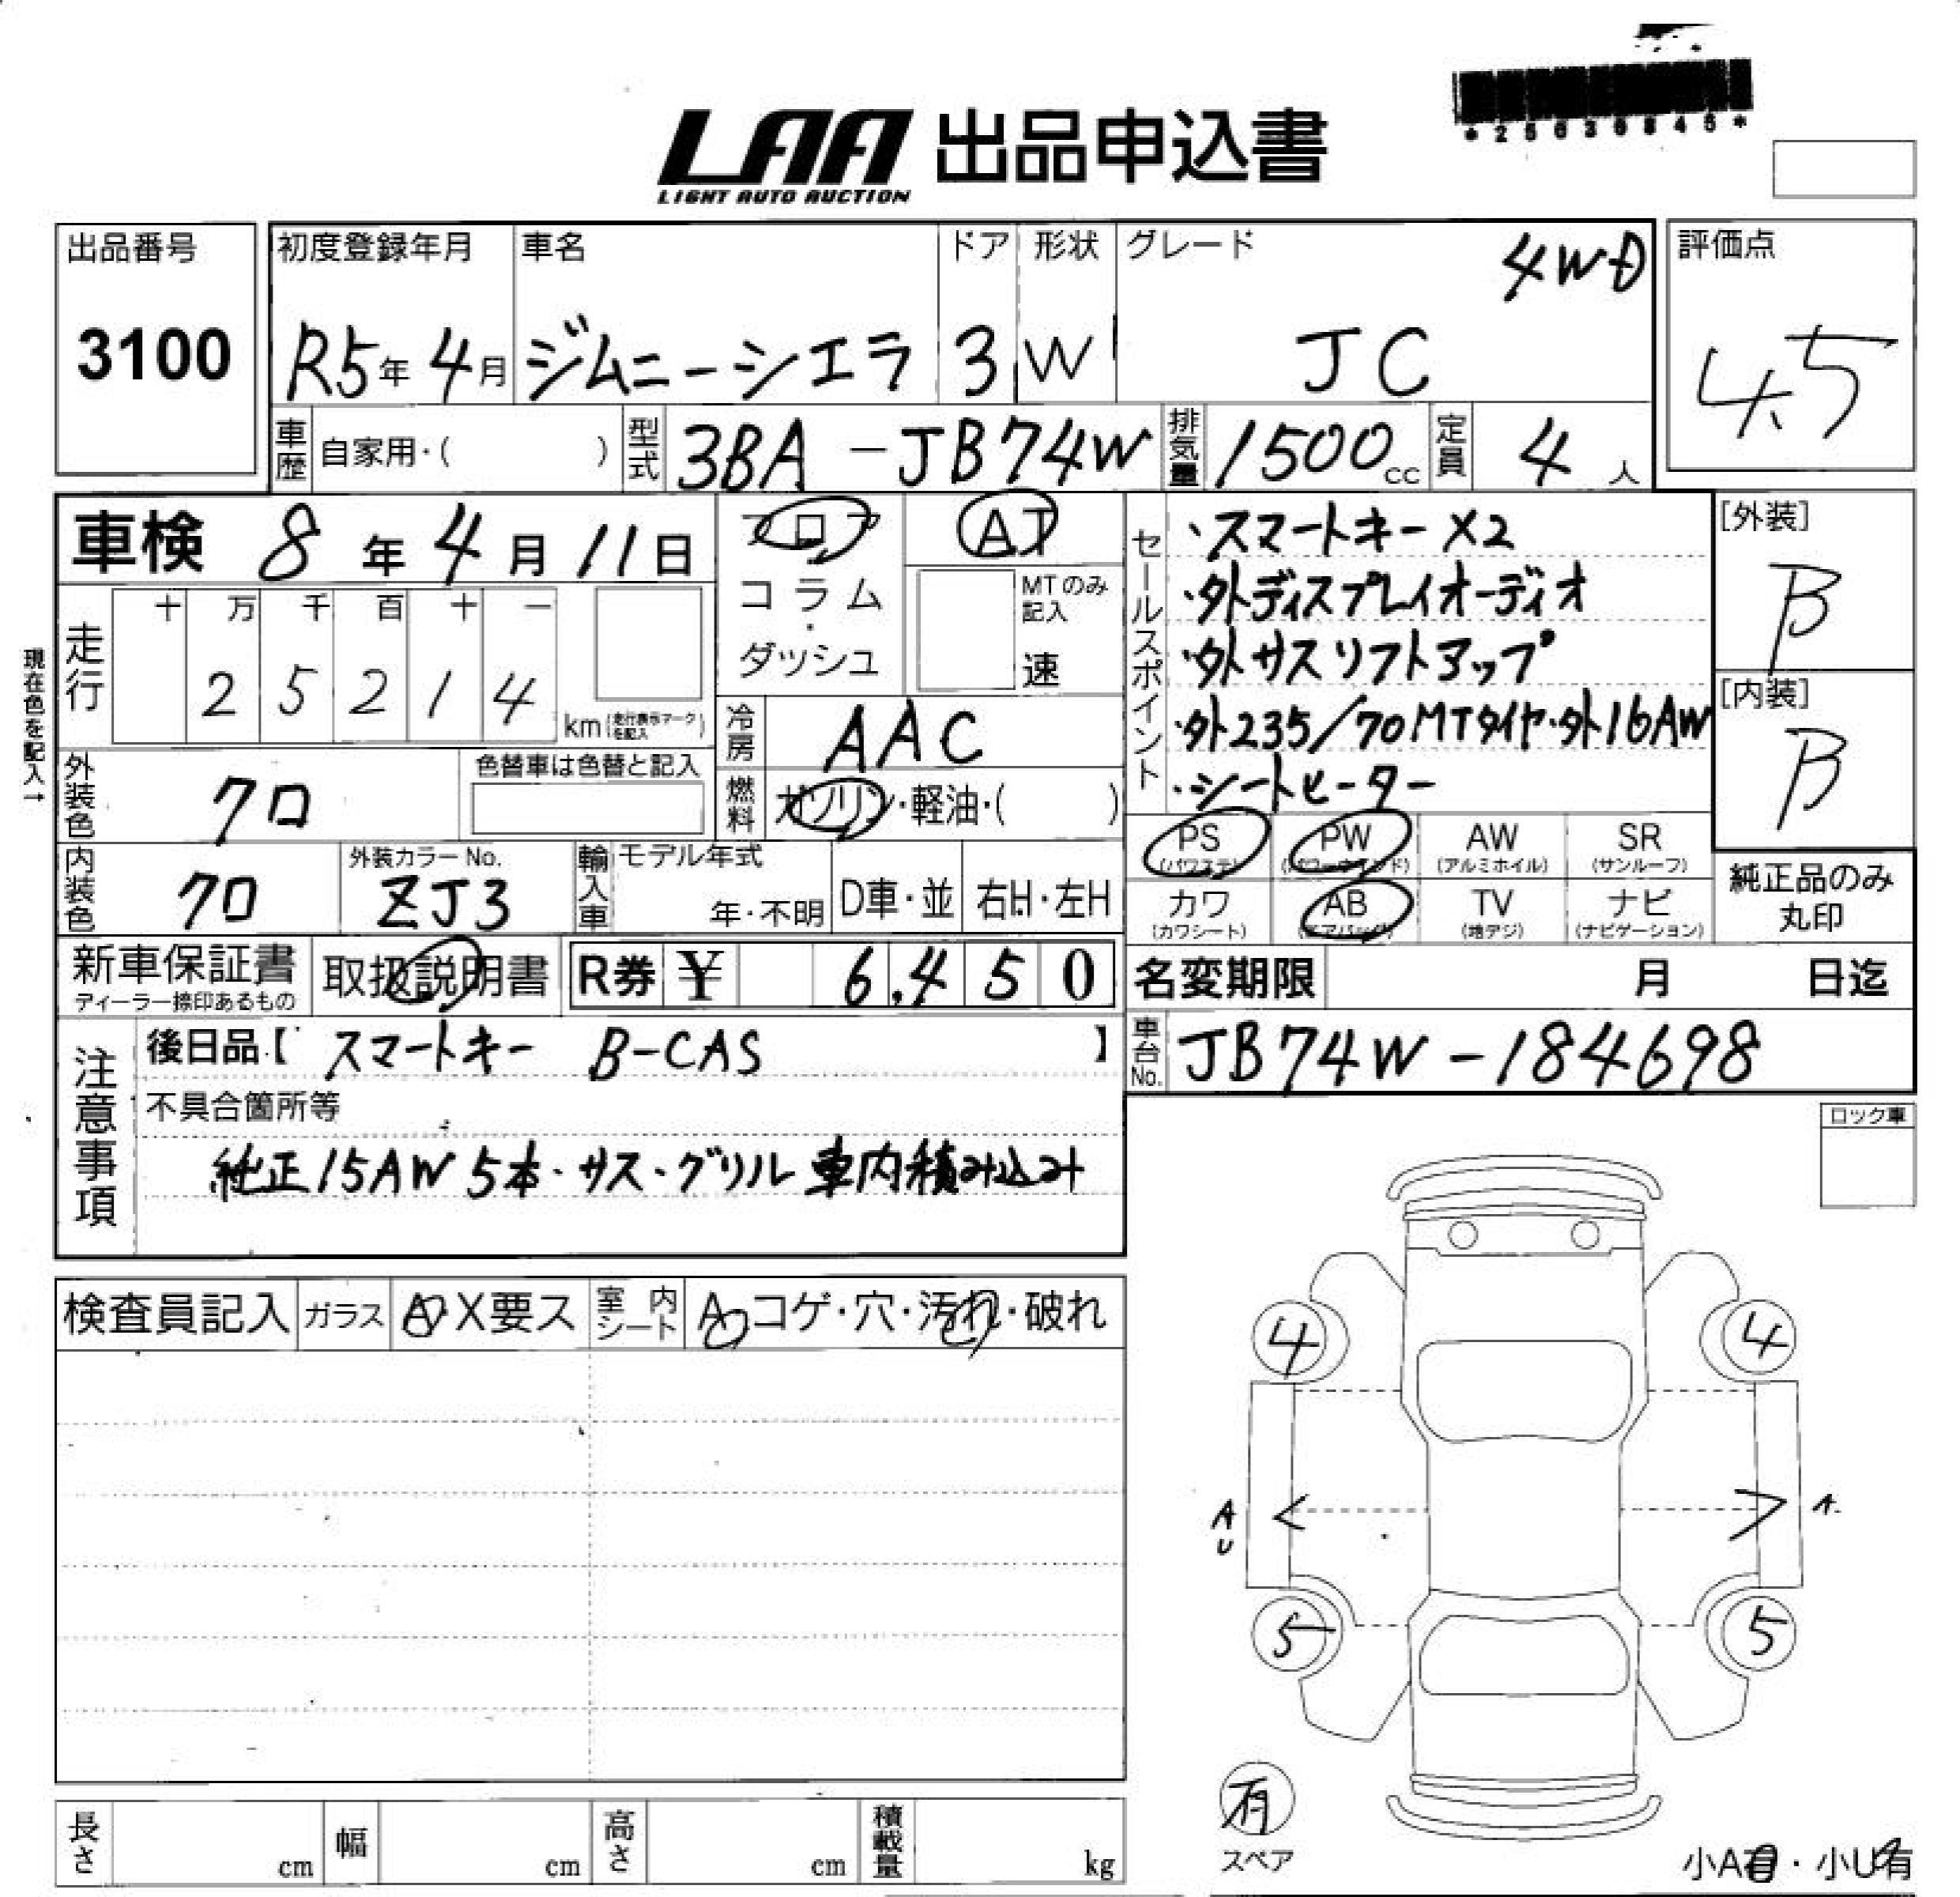 LAA 出品申込書
LIGHT AUTO AUCTION
出品番号
3100
初度登録年月 車名 ドア 形状 グレード 4WD
R5年 4月 ジムニーシエラ 3 W JC
評価点
4.5
車歴 自家用・( ) 型式 3BA-JB74W 排気量 1500cc 定員 4人
車検 8年 4月 11日
フロア
コラム
・
ダッシュ
AT
MTのみ記入
速
セールスポイント
・スマートキー×2
・外ディスプレイオーディオ
・外サスリフトアップ
・外235/70MTタイヤ・外16AW
・シートヒーター
[外装]
B
[内装]
B
現在色を記入→
走行 十 万 千 百 十 一
2 5 2 1 4
km(走行表示マークを記入)
冷房 AAC
燃料 ガソリン・軽油・( )
外装色 クロ
色替車は色替と記入
内装色 クロ
外装カラーNo.
ZJ3
輸入車 モデル年式
年・不明 D車・並 右H・左H
PS PW AW SR
(パワステ) (パワーウインド) (アルミホイル) (サンルーフ)
カワ AB TV ナビ
(カワシート) (エアバッグ) (地デジ) (ナビゲーション)
純正品のみ
丸印
新車保証書
ディーラー捺印あるもの
取扱説明書
R券 ¥ 6.450
名変期限 月 日迄
車台No. JB74W-184698
注意事項
後日品【 スマートキー B-CAS 】
不具合箇所等
純正15AW5本・サス・グリル車内積み込み
ロック車
検査員記入 ガラス A・X要ス 室内シート A・コゲ・穴・汚れ・破れ
4 4
A
U
A
5 5
有
スペア
小A有・小U有
長さ cm 幅 cm 高さ cm 積載量 kg